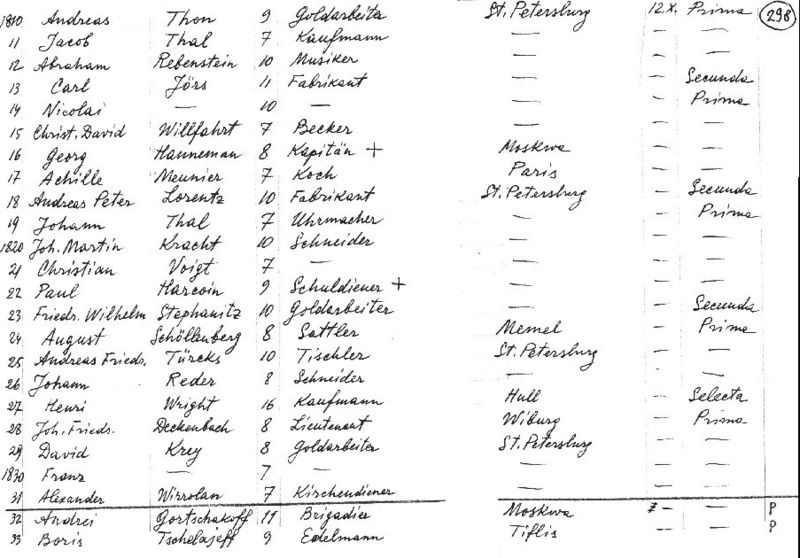 1810 Andreas Thon 9 Goldarbeiter St. Petersburg 12.X. Prima 298
11 Jacob Thal 7 Kaufmann — — —
12 Abraham Rebenstein 10 Musiker — — —
13 Carl Jörs 11 Fabrikant — — Secunda
14 Nicolai — 10 — — — Prima
15 Christ. David Willfahrt 7 Becker — — —
16 Georg Hanneman 8 Kapitän + Moskwa — —
17 Achille Meunier 7 Koch Paris — —
18 Andreas Peter Lorentz 10 Fabrikant St. Petersburg — Secunda
19 Johann Thal 7 Uhrmacher — — Prima
1820 Joh. Martin Kracht 10 Schneider — — —
21 Christian Voigt 7 — — — —
22 Paul Harcoin 9 Schuldiener + — — —
23 Friedr. Wilhelm Stephanitz 10 Goldarbeiter — — Secunda
24 August Schöllenberg 8 Sattler Memel — Prima
25 Andreas Friedr. Türcks 10 Tischler St. Petersburg — —
26 Johann Reder 8 Schneider — — —
27 Henri Wright 16 Kaufmann Hull — Selecta
28 Joh. Friedr. Deckenbach 8 Lieutenant Wiburg — Prima
29 David Krey 8 Goldarbeiter St. Petersburg — —
1830 Franz — 7 — — — —
31 Alexander Wirrolan 7 Kirchendiener — — —
32 Andrei Gortschakoff 11 Brigadier Moskwa 7 — — P
33 Boris Tschelajeff 9 Edelmann Tiflis — — P